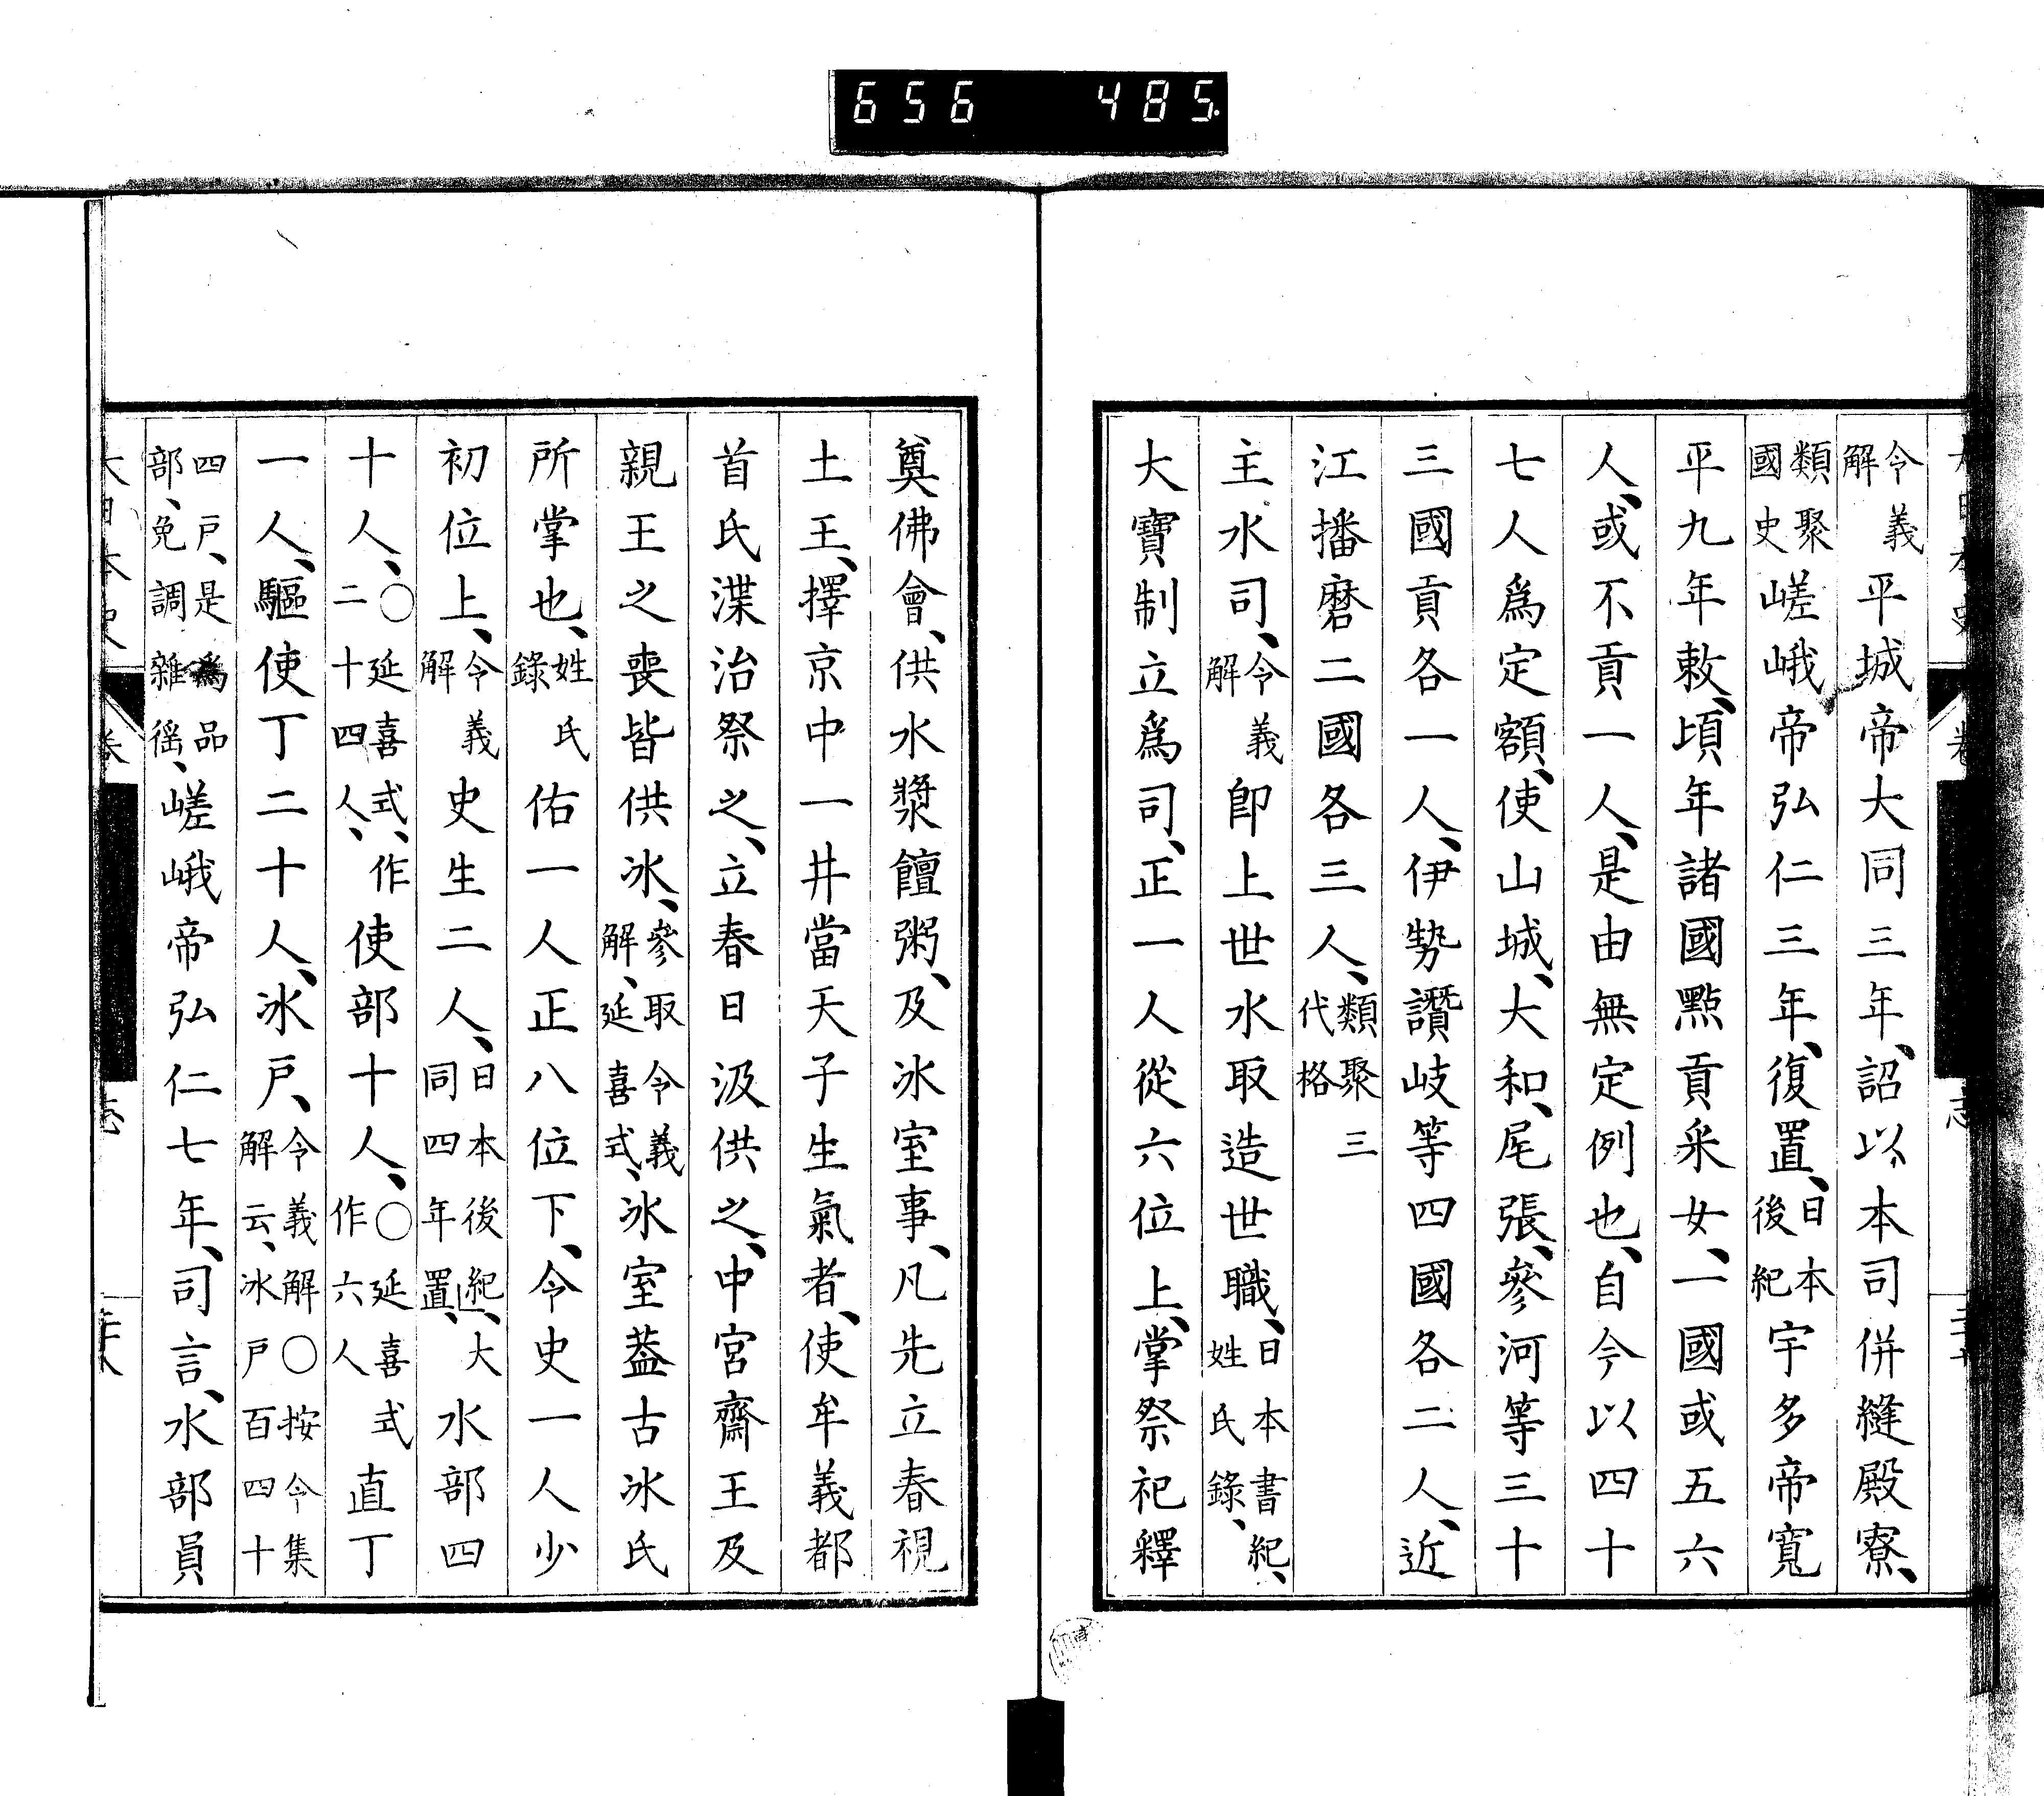 656 485
令義解平城帝大同三年、詔以本司併縫殿寮、
類聚國史嵯峨帝弘仁三年、復置、日本後紀宇多帝寬
平九年敕、頃年諸國點貢采女、一國或五六
人、或不貢一人、是由無定例也、自今以四十
七人爲定額、使山城、大和、尾張、參河等三十
三國貢各一人、伊勢讚岐等四國各二人、近
江播磨二國各三人、類聚三代格
主水司、令義解卽上世水取造世職、日本書紀、姓氏錄、
大寶制立爲司、正一人從六位上、掌祭祀釋
奠佛會、供水漿饘粥、及冰室事、凡先立春視
土王、擇京中一井當天子生氣者、使牟義都
首氏渫治祭之、立春日汲供之、中宮齋王及
親王之喪皆供冰、參取令義解、延喜式、冰室葢古冰氏
所掌也、姓氏錄佑一人正八位下、令史一人少
初位上、令義解史生二人、日本後紀、大同四年置、水部四
十人、○延喜式、作二十四人、使部十人、○延喜式作六人直丁
一人、驅使丁二十人、冰戸、令義解○按令集解云、冰戸百四十
四戸、是爲品部、免調雜徭、嵯峨帝弘仁七年、司言、水部員
大日本史
卷
志